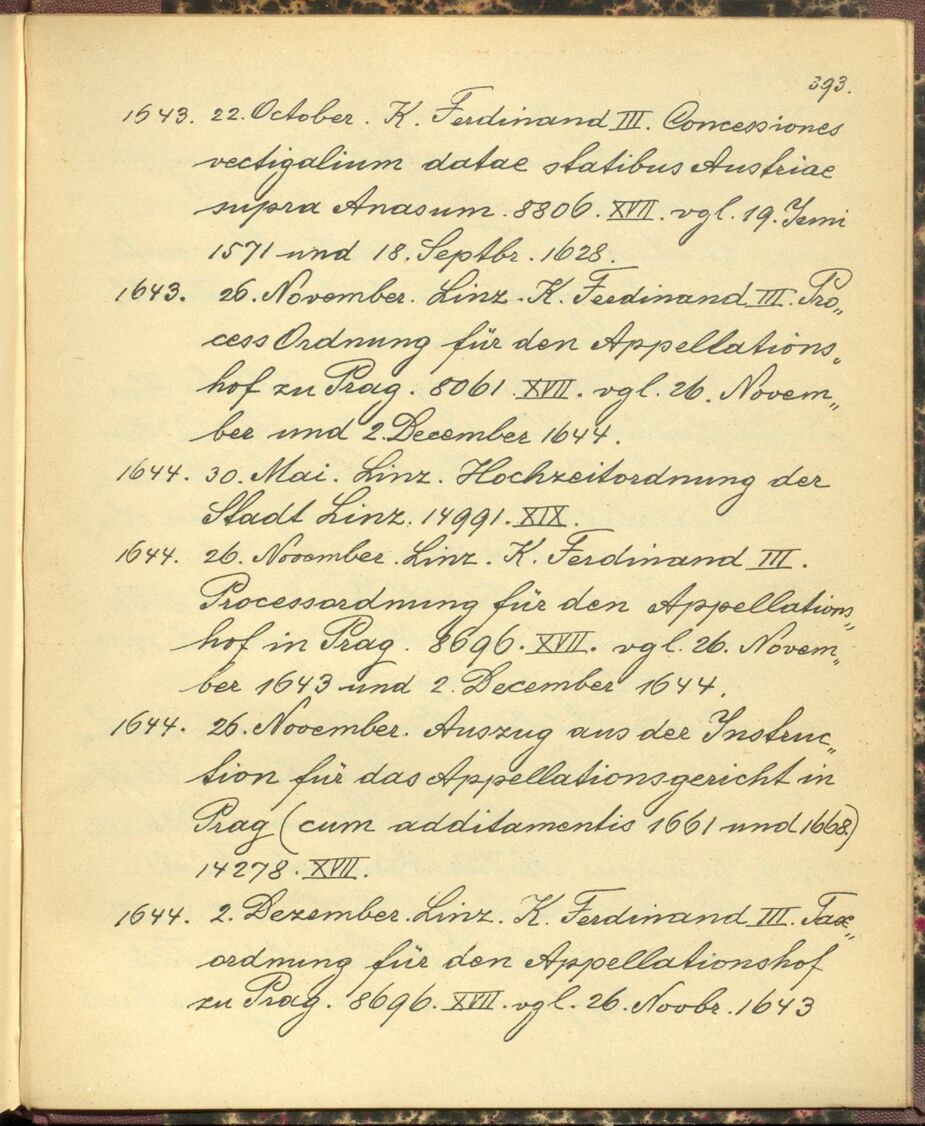 393.
1643. 22. October. K. Ferdinand III. Concessiones
vectigalium datae statibus Austriae
supra Anasum. 8806. XVII. vgl. 19. Juni
1571 und 18. Septbr. 1628.
1643. 26. November. Linz. K. Ferdinand III. Pro„
cess Ordnung für den Appellations„
hof zu Prag. 8061. XVII. vgl. 26. Novem„
ber und 2. December 1644.
1644. 30. Mai. Linz. Hochzeitordnung der
Stadt Linz. 14991. XIX.
1644. 26. November. Linz. K. Ferdinand III.
Processordnung für den Appellations„
hof in Prag. 8696. XVII. vgl. 26. Novem„
ber 1643 und 2. December 1644.
1644. 26. November. Auszug aus der Instruc„
tion für das Appellationsgericht in
Prag (cum additamentis 1661 und 1668.)
14278. XVII.
1644. 2. Dezember. Linz. K. Ferdinand III. Tax„
ordnung für den Appellationshof
zu Prag. 8696. XVII. vgl. 26. Novbr. 1643